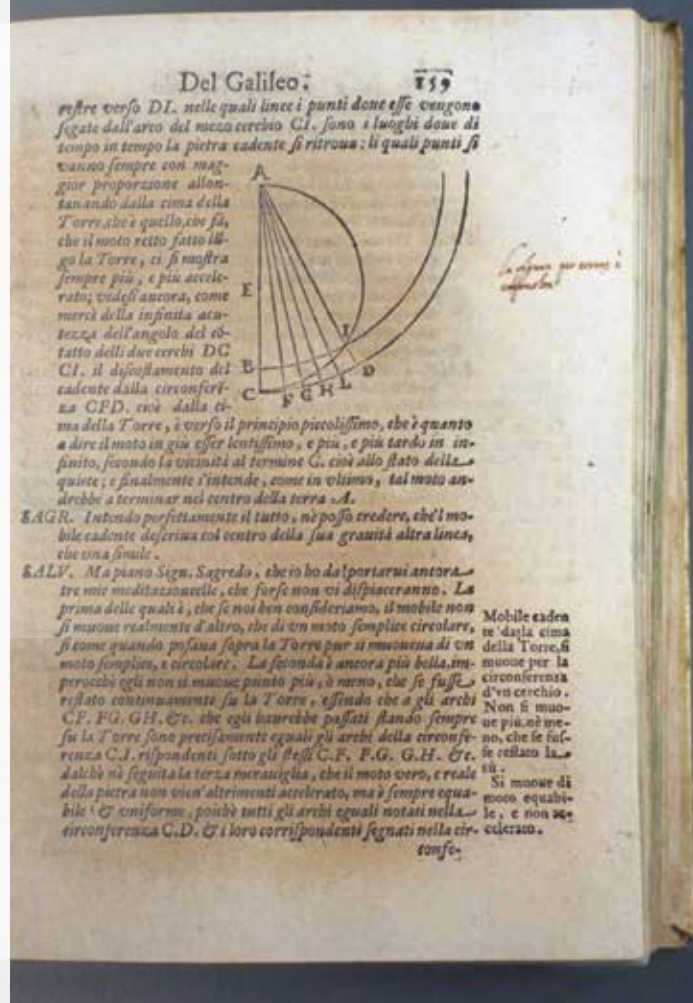 Del Galileo. 159
reſtre verſo DI. nelle quali linee i punti doue eſſe vengono
ſegate dall'arco del mezo cerchio CI. ſono i luoghi doue di
tempo in tempo la pietra cadente ſi ritroua; li quali punti ſi
vanno ſempre con mag-
gior proporzione allon-
tanando dalla cima della
Torre, che è quello, che fà,
che il moto retto fatto lũ-
go la Torre, ci ſi moſtra
ſempre più, e più accele-
rato; vedeſi ancora, come
mercè della infinita acu-
tezza dell'angolo del cõ-
tatto delli due cerchi DC
CI. il diſcoſtamento del
cadente dalla circonferẽ-
za CFD. cioè dalla ci-
ma della Torre, è verſo il principio piccoliſſimo, che è quanto
a dire il moto in giù eſſer lentiſſimo, e più, e più tardo in in-
finito, ſecondo la vicinità al termine C. cioè allo ſtato della
quiete; e finalmente s'intende, come in vltimo, tal moto an-
drebbe a terminar nel centro della terra A.
A
E
I
B
D
C
F
G
H
L
SAGR. Intendo perfettamente il tutto, nè poſſo credere, che'l mo-
bile cadente deſcriua col centro della ſua grauità altra linea,
che vna ſimile.
SALV. Ma piano Sign. Sagredo, che io ho da portarui ancora
tre mie meditazioncelle, che forſe non vi diſpiaceranno. La
prima delle quali è, che ſe noi ben conſideriamo, il mobile non
ſi muoue realmente d'altro, che di vn moto ſemplice circolare,
ſi come quando poſaua ſopra la Torre pur ſi muoueua di vn
moto ſemplice, e circolare. La ſeconda è ancora più bella, im-
perocchè egli non ſi muoue punto più, ò meno, che ſe fuſſe
reſtato continuamente ſu la Torre, eſſendo che a gli archi
CF. FG. GH. &c. che egli haurebbe paſſati ſtando ſempre
ſu la Torre ſono preciſamente eguali gli archi della circonfe-
renza C.I. riſpondenti ſotto gli ſteſſi C.F. F.G. G.H. &c.
dalchè nè ſeguita la terza merauiglia, che il moto vero, e reale
della pietra non vien'altrimenti accelerato, ma è ſempre equa-
bile, & vniforme, poichè tutti gli archi eguali notati nella
circonferenza C.D. & i loro corriſpondenti ſegnati nella cir-
confe-
Mobile caden
te dalla cima
della Torre, ſi
muoue per la
circonferenza
d'vn cerchio.
Non ſi muo-
ue più, nè me-
no, che ſe fuſ-
ſe reſtato la
sù.
Si muoue di
moto equabi-
le, e non ac-
celerato.